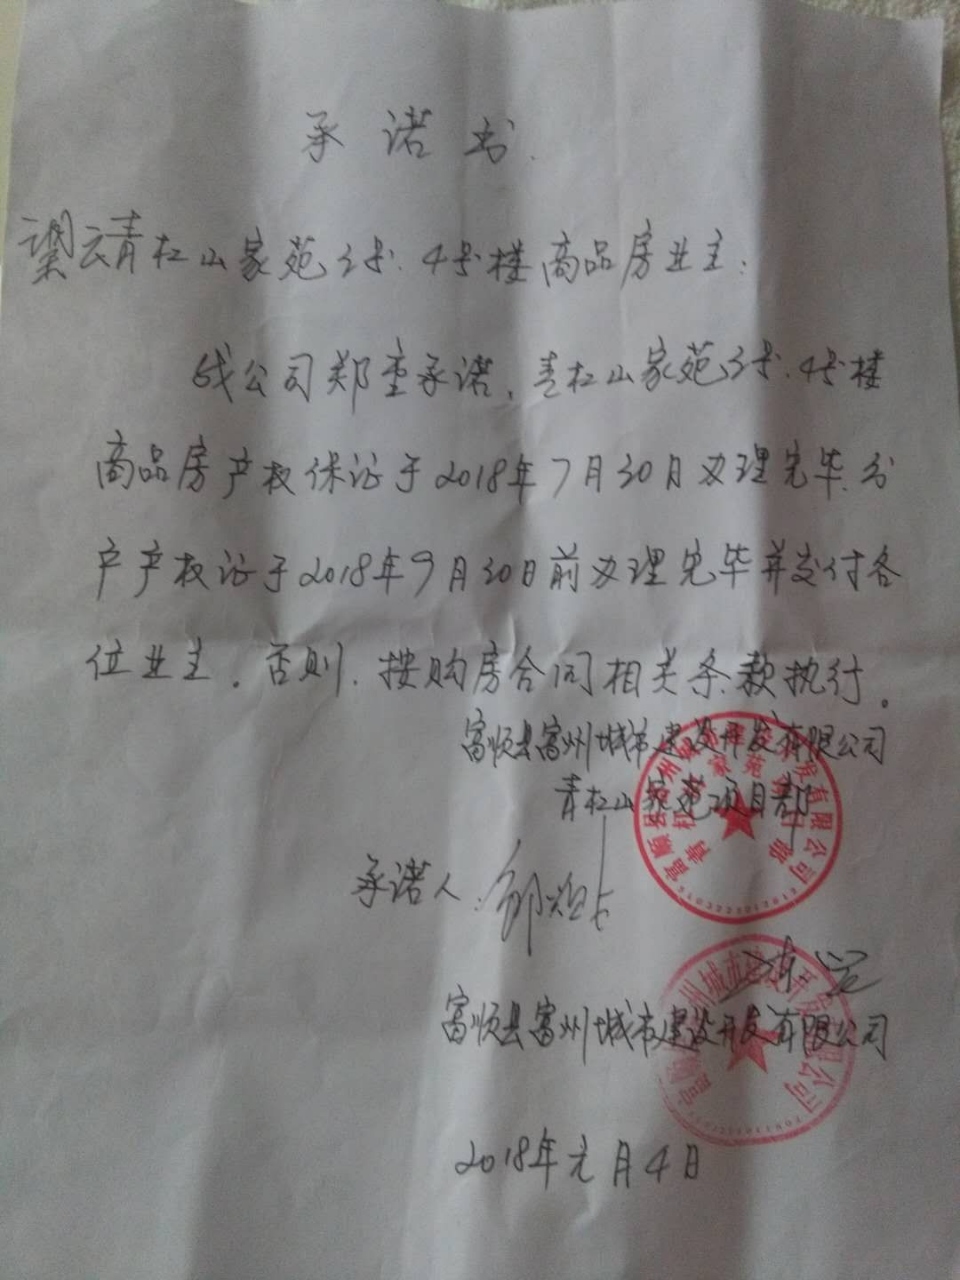 承诺书
云青杠山家苑3号.4号楼商品房业主:
我公司郑重承诺,青杠山家苑3号.4号楼
商品房产权保证于2018年7月30月办理完毕.分
户产权证于2018年9月30日前办理完毕并交付各
位业主。否则.按购房合同相关条款执行。
富顺县富州城市建设开发有限公司
青杠山家苑项目部
承诺人:
富顺县富州城市建设开发有限公司
2018年元月4日